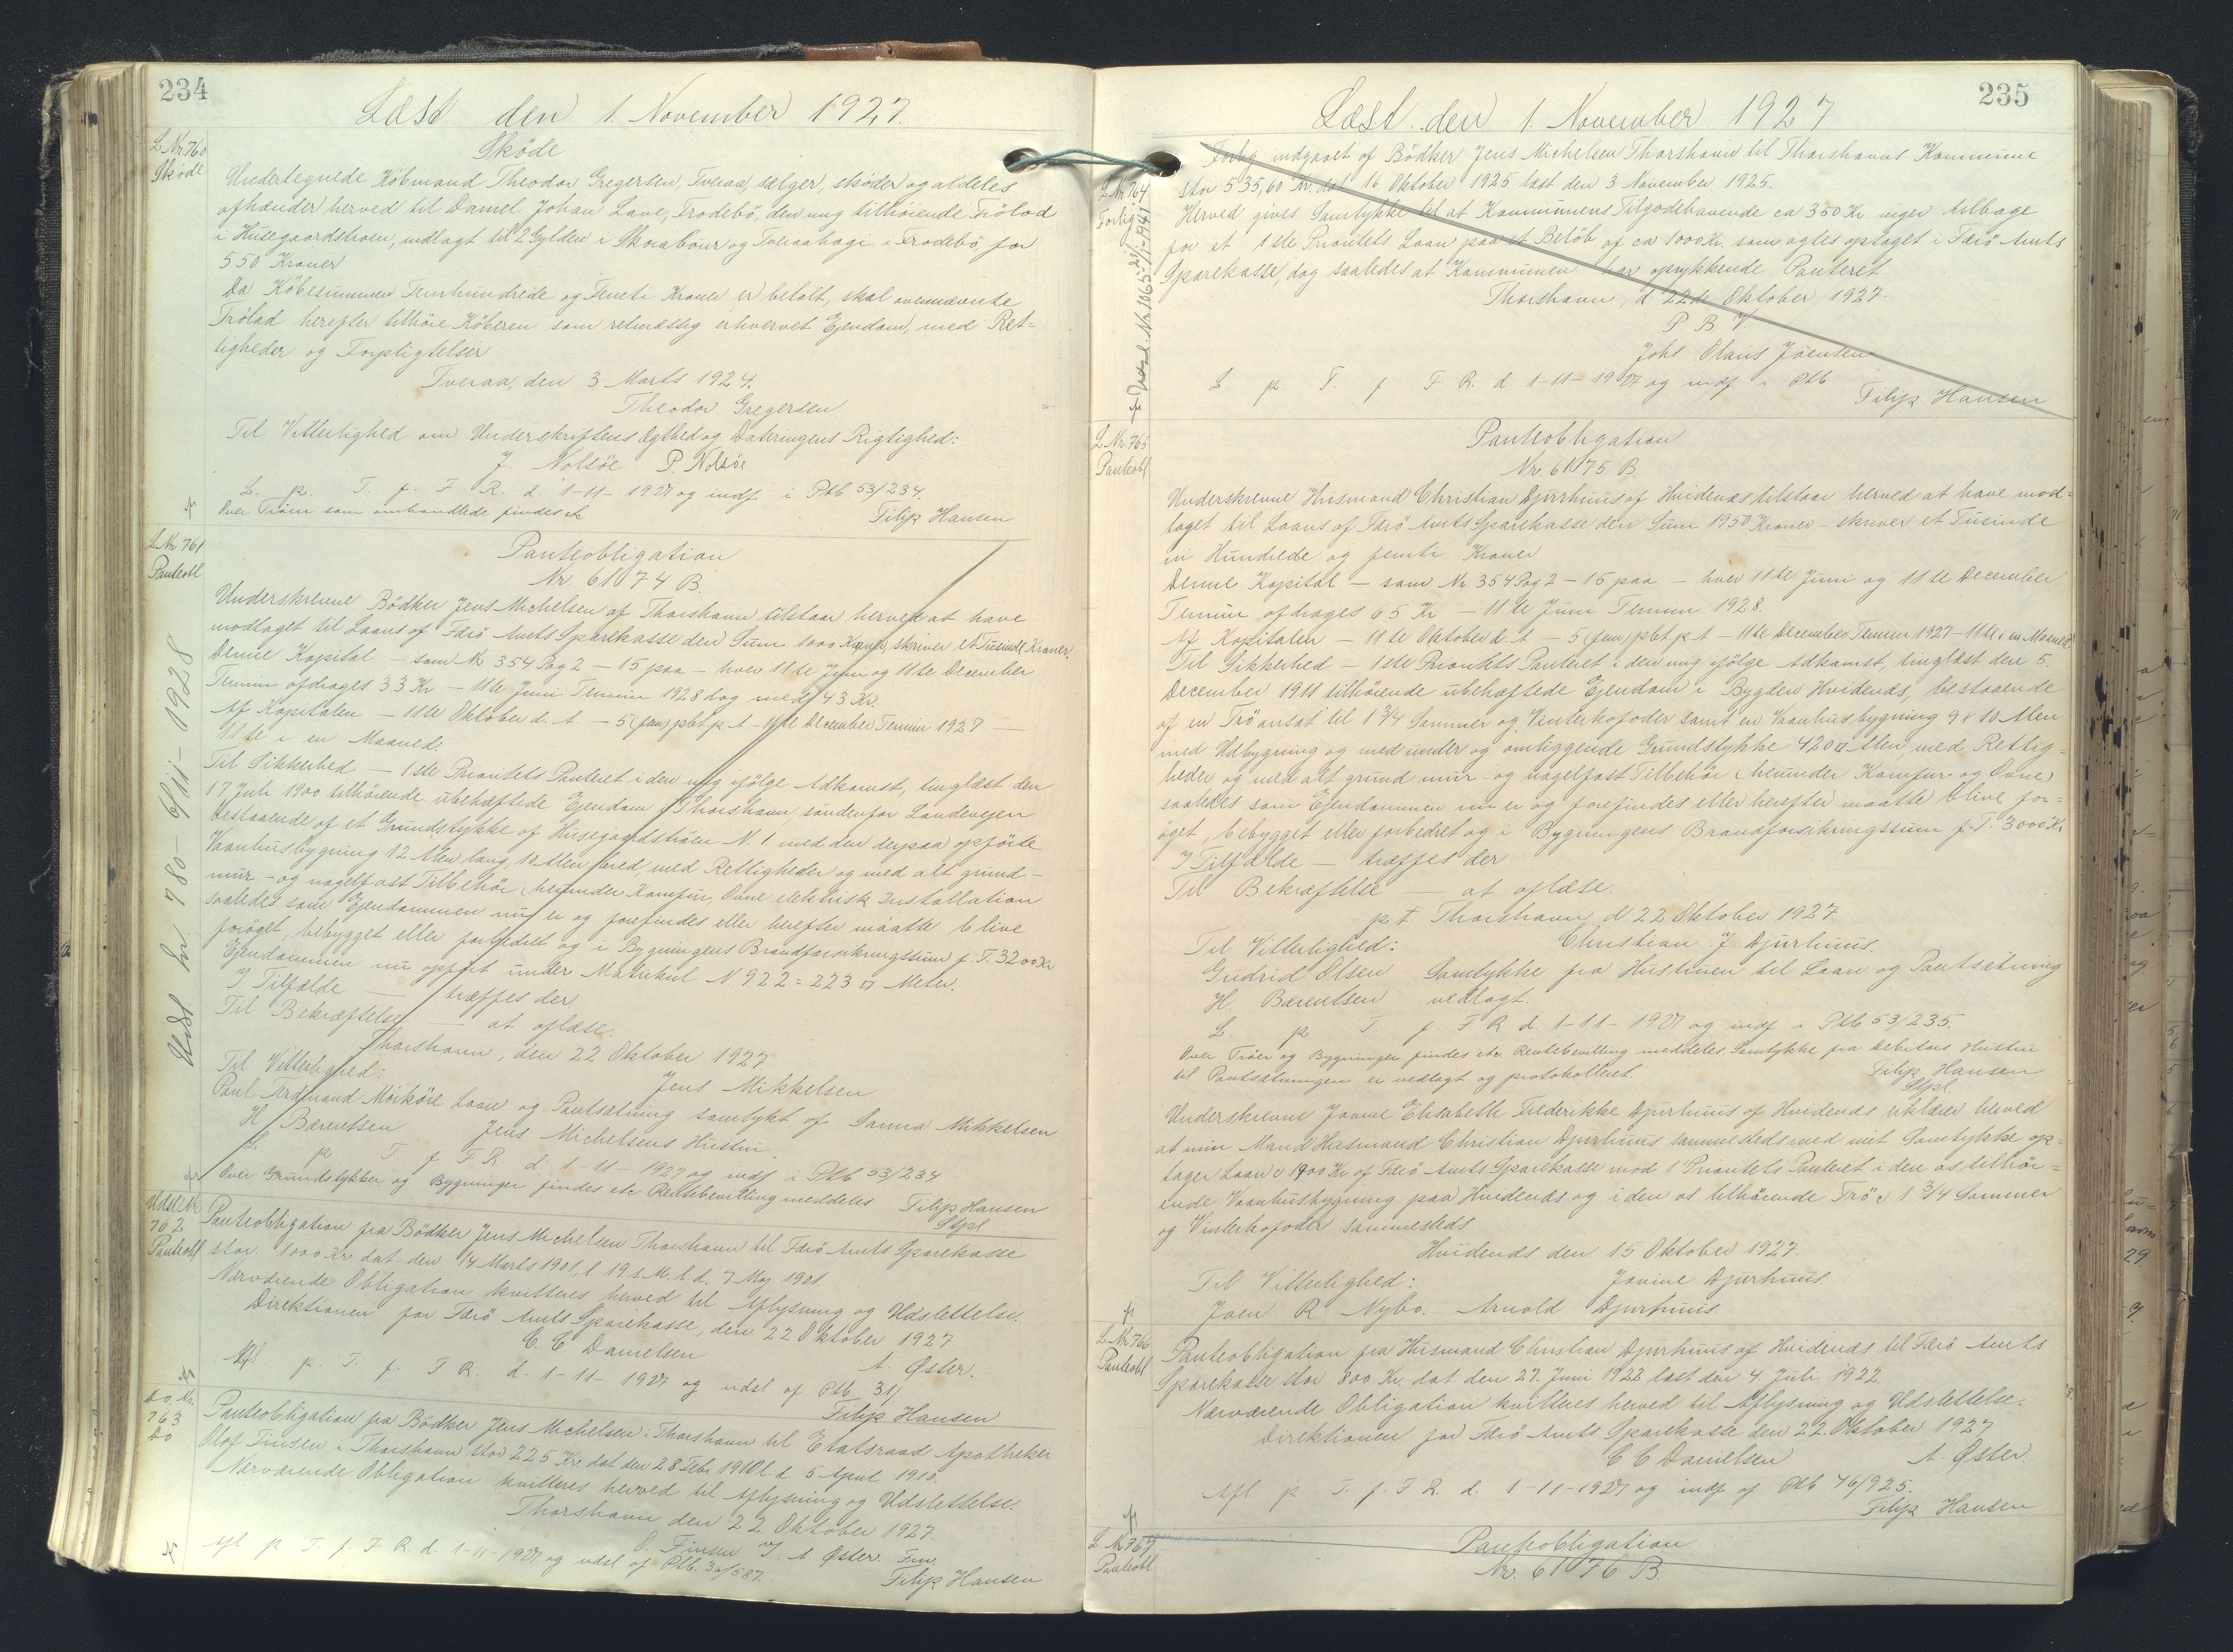 234
Læst den 1. November 1927.
L. Nr. 760
Skøde
Skøde
Undertegnede Købmand Theodor Gregersen, Tveraa, sælger, skøder og aldeles
afhænder herved til Daniel Johan Lave, Frodebö, den mig tilhörende Trölad
i Husegaardstroen, indlagt til 2 Gylden i Skorabour og Tveraahagi i Frodebö, for
550 Kroner
Da Köbesummen Femhundrede og Femti Kroner er betalt, skal ovennævnte
Trölad herefter tilhöre Köberen som retmæssig erhvervet Ejendom, med Ret-
tigheder og Forpligtelser
Tveraa, den 3 Marts 1924.
Theodor Gregersen
Til Vitterlighed om Underskriftens Ægthed og Dateringens Rigtighed:
J. Nolsöe P. Nolsöe
L. p. T. f. F R. d. 1-11-1927 og indf. i Ptb 53/234.
Over Tröen som omhandlede findes etc
Filip Hansen
L. Nr. 761
Panteobl
Panteobligation
Nr. 61074 B.
Underskrevne Bödker Jens Michelsen af Thorshavn tilstaar herved at have
modtaget til Laans af Færö Amts Sparekasse den Sum 1000 Kroner, skriver et Tusinde Kroner.
Denne Kapital — som Nr 354 Pag 2 — 15 paa — hver 11te Juni og 11te December
Termin afdrages 33 Kr — 11te Juni Termin 1928 dog med 43 Kr.
Af Kapitalen — 11te Oktober d. A. — 5 (fem) pCt p. A — 11te December Termin 1927 —
11te i en Maaned.
Til Sikkerhed — 1ste Prioritets Panteret i den mig ifölge Adkomst, tinglæst den
17 Juli 1900 tilhörende ubehæftede Ejendom i Thorshavn, söndenfor Landevejen
bestaaende af et Grundstykke af Husegaardströen N. 1 med den derpaa opförte
Vaanhusbygning 12 Alen lang, 10 Alen bred, med Rettigheder og med alt grund-
mur- og nagelfast Tilbehör, herunder Komfur, Ovne elektrisk Installation
saaledes som Ejendommen nu er og forefindes eller herefter maatte blive
foröget, bebygget eller forbedret og i Bygningens Brandforsikringssum p. T. 3200 Kr
Ejendommen nu opfört under Matrikul N 922 = 223 □ Meter.
I Tilfælde — træffes der
Til Bekræftelse — at aflæse.
Thorshavn, den 22 Oktober 1927
Til Vitterlighed:
Jens Mikkelsen
Paul Ferdinand Mörköre Laan og Pantsætning samtykt af Sanna Mikkelsen
H. Bærentsen Jens Michelsens Hustru.
L p T. f. F R d. 1-11-1927 og indf i Ptb 53/234
Over Grundstykket og Bygninger findes etc Rentebevilling meddeles Filip Hansen
Stpl
Udst 780- 6/11-1928
Udsl L Nr
762
Panteobl
Panteobligation fra Bödker Jens Michelsen Thorshavn til Færö Amts Sparekasse
stor 1000 Kr dat den 14 Marts 1901, l 19 s. M. l d. 7 Maj 1901.
Nærværende Obligation kvitteres herved til Aflysning og Udslettelse.
Direktionen for Færö Amts Sparekasse, den 22 Oktober 1927
C. C Danielsen A. Øster.
Afl p. T. f. F R. d. 1-11-1927 og udsl af Ptb 31/
Filip Hansen
Do. Nr.
763
Do
Panteobligation fra Bödker Jens Michelsen i Thorshavn til Etatsraad Apotheker
Olaf Finsen i Thorshavn stor 225 Kr. dat den 28 Febr 1910 l. d 5 April 1910.
Nærværende Obligation kvitteres herved til Aflysning og Udslettelse.
Thorshavn den 22. Oktober 1927.
O. Finsen v/ A. Øster. Fm.
Afl. p T. f. F R d. 1-11-1927 og udsl af Ptb. 36/587.
Filip Hansen
235
Læst den 1. November 1927
L. Nr. 764
Forlig
Forlig indgaaet af Bödker Jens Michelsen Thorshavn til Thorshavns Kommune
stor 535,60 Kr. dat 16 Oktober 1925 læst den 3 November 1925.
Herved gives Samtykke til at Kommunens Tilgodehavende ca 350 Kr viger tilbage
for et 1ste Prioritets Laan paa et Belöb af ca 1000 Kr. som agtes optaget i Færö Amts
Sparekasse, dog saaledes at Kommunen har oprykkende Panteret.
Thorshavn, d 22de Oktober 1927.
P B V
Johs Olavis Jöensen
L p T. f F R. d. 1-11-1927 og indf i Ptb
Filip Hansen
L. Nr. 765
Panteobl
Panteobligation
Nr 61075 B
Underskrevne Husmand Christian Djurhuus af Hvidenæs tilstaar herved at have mod-
taget til Laans af Færö Amts Sparekasse den Sum 1950 Kroner — skriver et Tusinde
ni Hundrede og femti Kroner
Denne Kapital — som Nr 354 Pag 2 — 15 paa — hver 11te Juni og 11te December
Termin afdrages 65 Kr — 11te Juni Termin 1928.
Af Kapitalen — 11te Oktober d. A — 5 (fem) pCt p A — 11te December Termin 1927 — 11te i en Maaned
Til Sikkerhed — 1ste Prioritets Panteret i den mig ifölge Adkomst, tinglæst den 5.
December 1911 tilhörende ubehæftede Ejendom i Bygden Hvidenæs, bestaaende
af en Trö ansat til 1 3/4 Sommer og Vinterkofoder samt en Vaanhusbygning 9 x 10 Alen
med Udbygning og med under og omliggende Grundstykke 420 □ Alen, med Rettig-
heder og med alt grund mur- og nagelfast Tilbehör (herunder Komfur og Ovne)
saaledes som Ejendommen nu er og forefindes eller herefter maatte blive for-
öget, bebygget eller forbedret og i Bygningens Brandforsikringssum p. T. 3000 Kr
I Tilfælde — træffes der
Til Bekræftelse — at aflæse.
p. t Thorshavn, d 22 Oktober 1927
Til Vitterlighed: Christian J Djurhuus.
Gudrid Olsen Samtykke fra Hustruen til Laan og Pantsætning
H. Bærentsen vedlagt.
L p T f. F R d. 1-11-1927 og indf i Ptb 53/235.
Over Tröer og Bygninger findes etc. Rentebevilling meddeles. Samtykke fra Debitors Hustru
til Pantsætningen er vedlagt og protokolleret. Filip Hansen
Stpl.
Underskrevne Jovine Elisabeth Frederikke Djurhuus af Hvidenæs erklærer herved
at min Mand Husmand Christian Djurhuus sammesteds med mit Samtykke op-
tager Laan 1900 Kr af Færö Amts Sparekasse mod 1' Prioritets Panteret i den os tilhör-
ende Vaanhusbygning paa Hvidenæs og i den os tilhörende Trö 1 3/4 Sommer
og Vinterkofoder sammesteds.
Hvidenæs den 15 Oktober 1927.
Til Vitterlighed: Jovine Djurhuus.
Joen R Nybo. Arnold Djurhuus.
L. Nr. 766
Panteobl
Panteobligation fra Husmand Christian Djurhuus af Hvidenæs til Færö Amts
Sparekasse stor 800 Kr dat. den 27. Juni 1922 læst den 4. Juli 1922
Nærværende Obligation kvitteres herved til Aflysning og Udslettelse.
Direktionen for Færö Amts Sparekasse den 22. Oktober 1927
C C Danielsen A. Øster.
Afl p T. f. F R. d. 1-11-1927 og indf af Ptb 46/925.
Filip Hansen
L. Nr. 767
Panteobl
Panteobligation
Nr. 61076 B.